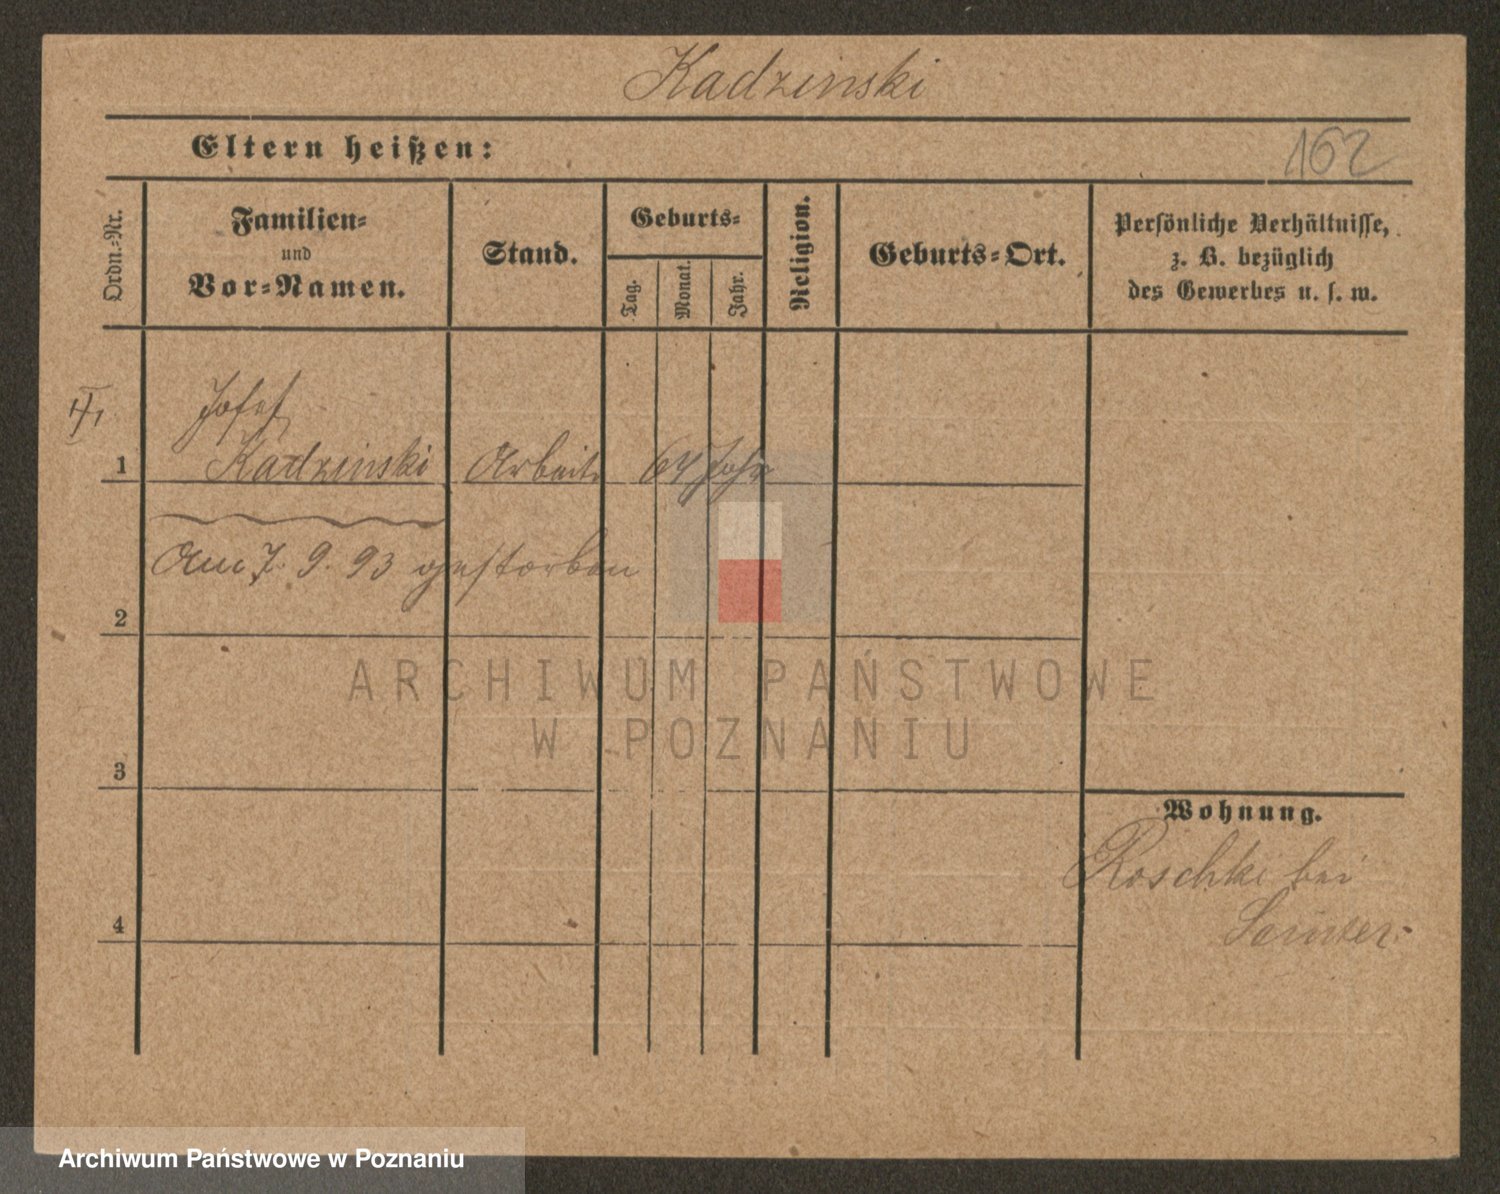 Kadzinski
Eltern heißen:
162
Ordn.-Nr.
Familien-
und
Vor-Namen.
Stand.
Geburts-
Tag.
Monat.
Jahr.
Religion.
Geburts-Ort.
Persönliche Verhältnisse,
z. B. bezüglich
des Gewerbes u. s. w.
Josef
1 Kadzinski Arbeiter 64 Jahr
Am 7. 9. 93 gestorben
2
ARCHIWUM PAŃSTWOWE
W POZNANIU
3
Wohnung.
Roschki bei
Samter
4
Archiwum Państwowe w Poznaniu